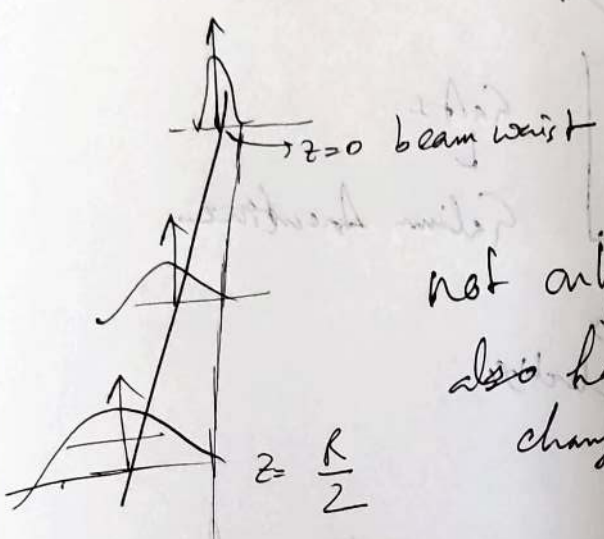 z=0 beam waist
not on
also h
chang
z= R/2